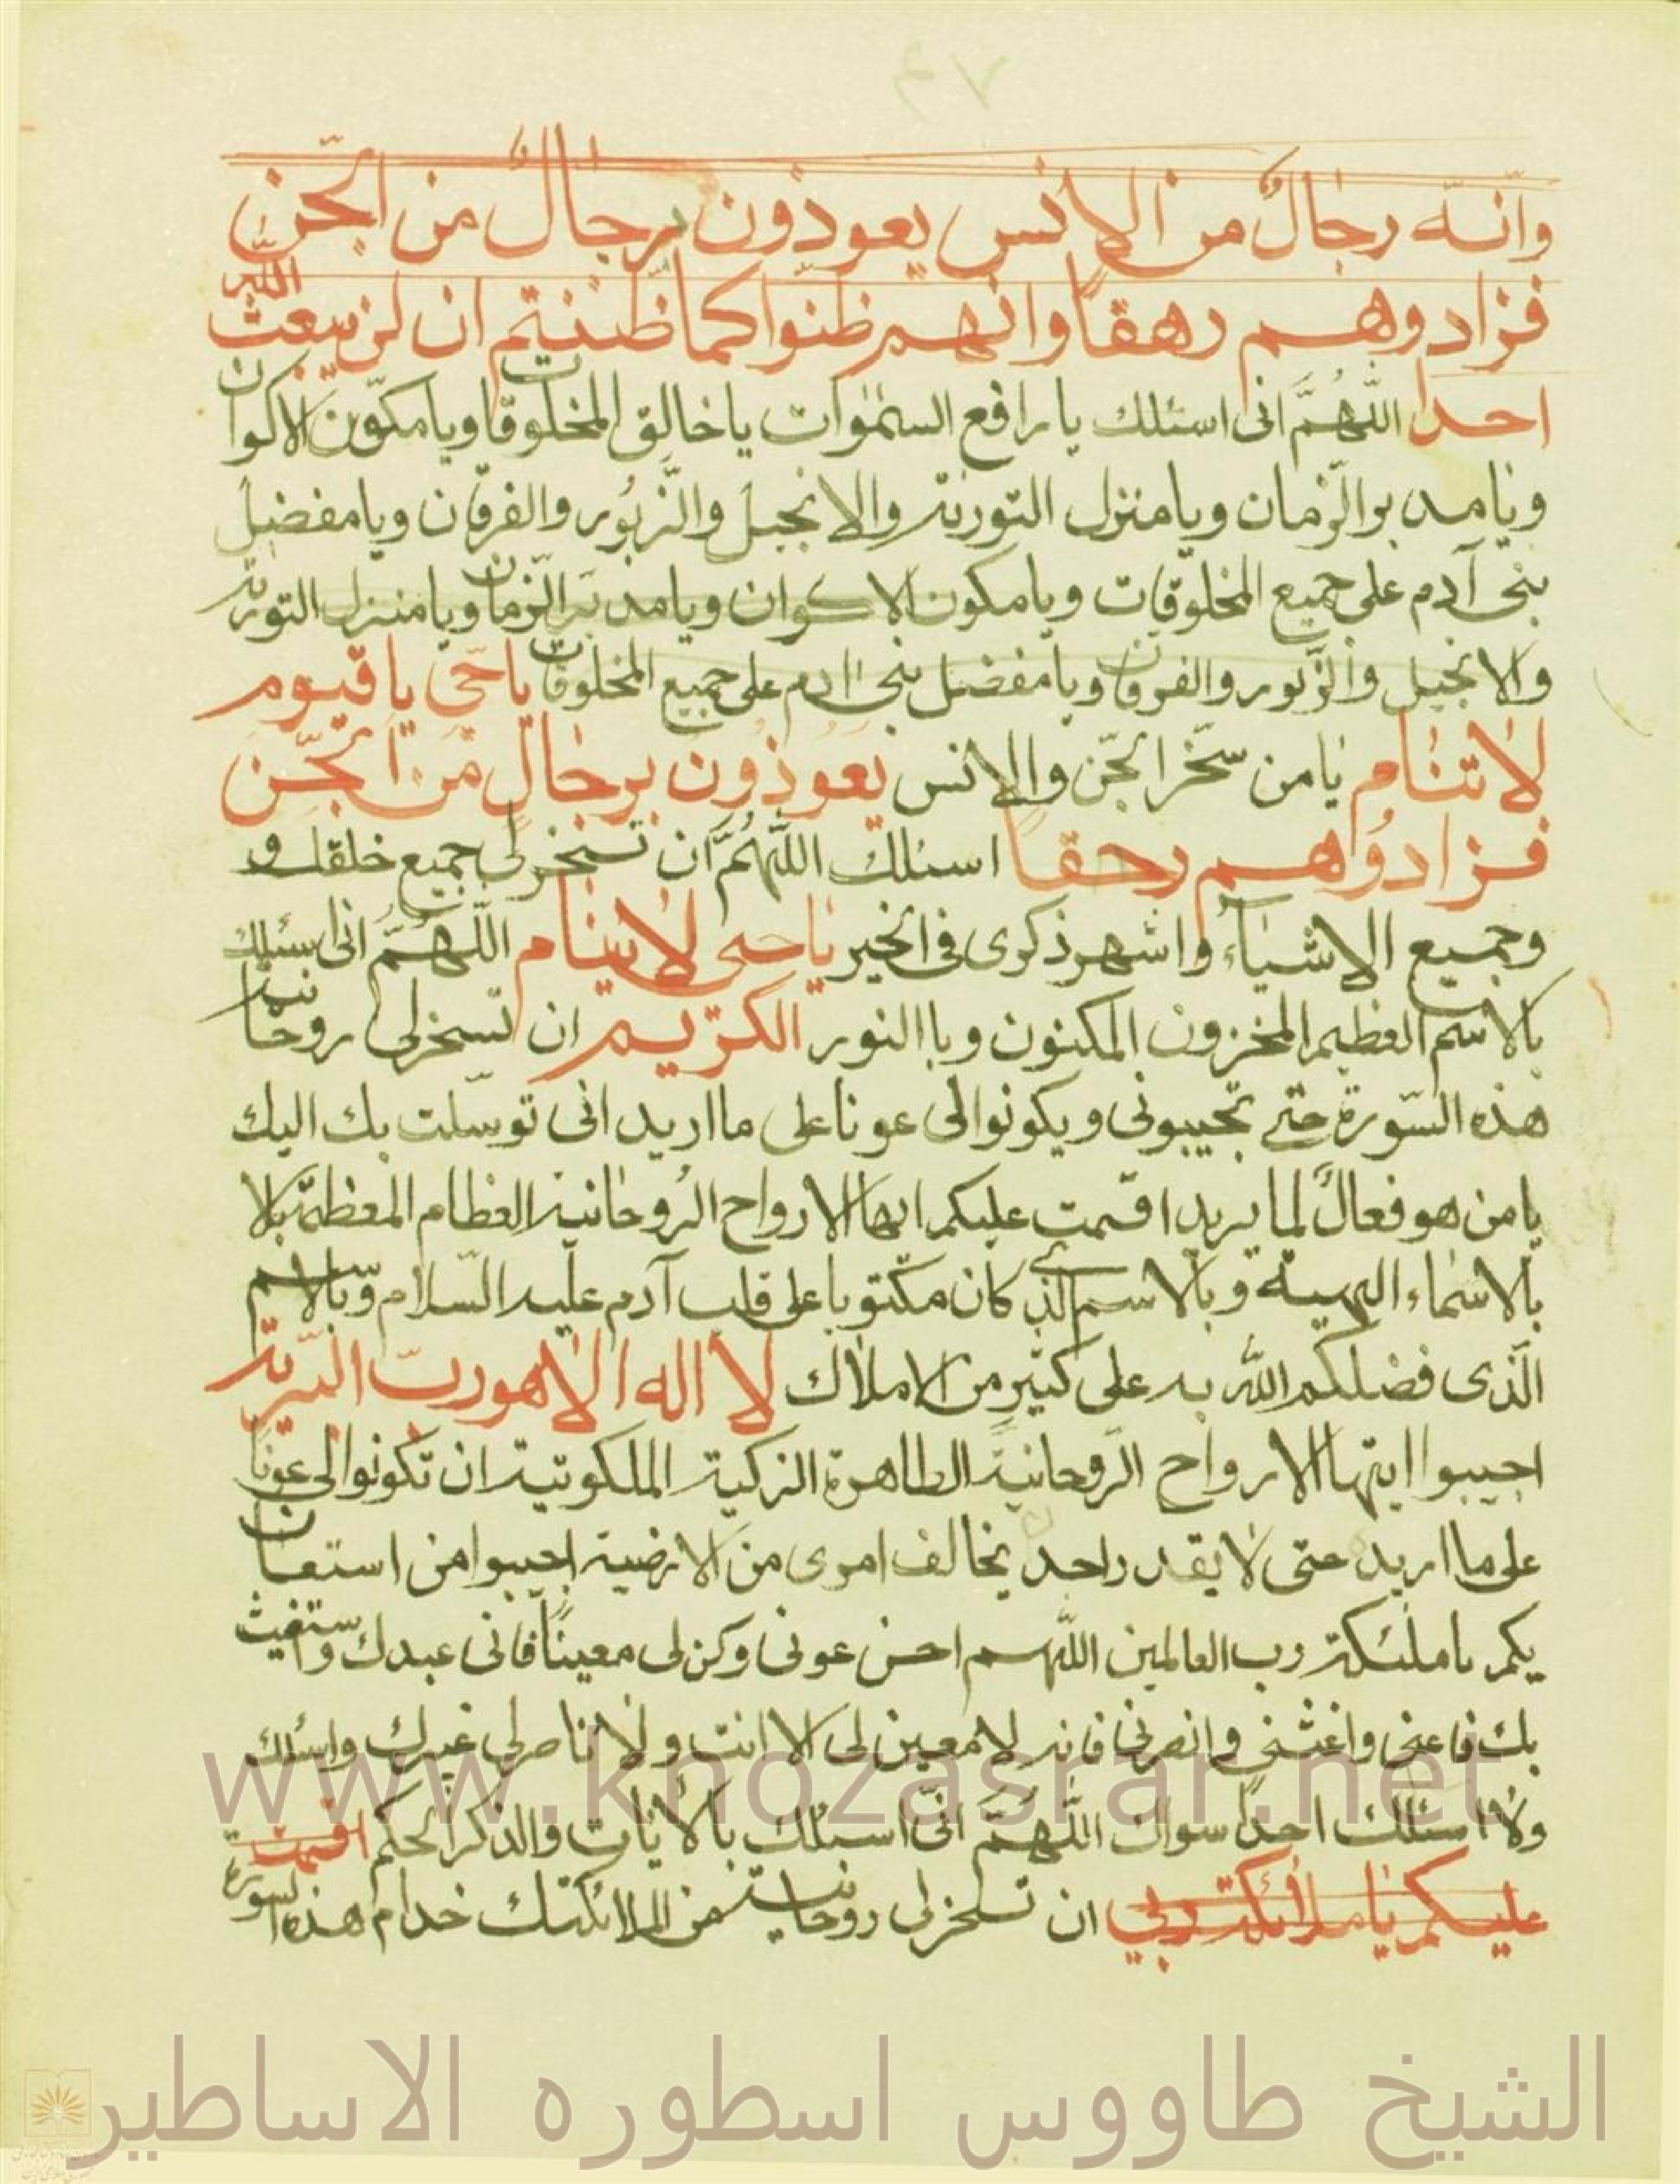 وانه رجال من الانس يعوذون برجال من الجن
فزادوهم رهقا وانهم ظنوا كما ظننتم ان لن يبعث الله
احدا اللهم انى اسئلك يا رافع السموات يا خالق المخلوقات ويا مكون الاكوان
ويا مدبر الزمان ويا منزل التورية والانجيل والزبور والفرقان ويا مفضل
بنى آدم على جميع المخلوقات ويا مكون الاكوان ويا مدبر الزمان ويا منزل التورية
والانجيل والزبور والفرقان ويا مفضل بنى ادم على جميع المخلوقات يا حى يا قيوم
لا تنام يا من سخر الجن والانس يعوذون برجال من الجن
فزادوهم رحقا اسئلك اللهم ان تسخر لى جميع خلقك و
وجميع الاشياء واشهر ذكرى فى الخير يا حى لا ينام اللهم انى اسئلك
بالاسم العظيم المخزون المكنون وبا النور الكريم ان تسخر لى روحانية
هذه السورة حتى تجيبونى ويكونوا لى عونا على ما اريد انى توسلت بك اليك
يا من هو فعال لما يريد اقسمت عليكم ايها الارواح الروحانية العظام المعظمة بالا
بالاسماء البهية وبالاسم الذى كان مكتوبا على قلب آدم عليه السلام وبالاسم
الذى فضلكم الله به على كثير من الاملاك لا اله الا هو رب البرية
اجيبوا ايتها الارواح الروحانية الطاهرة الزكية الملكوتية ان تكونوا لى عونا
على ما اريد حتى لا يقدر احد يخالف امرى من الارضية اجيبوا من استعان
بكم يا ملئكة رب العالمين اللهم احسن عونى وكن لى معينا فانى عبدك واستغيث
بك فاعنى واغثنى وانصرنى فانه لا معين لى الا انت ولا ناصر لى غيرك واسئلك
ولا اسئلك احدا سواك اللهم انى اسئلك بالايات والذكر الحكيم اقسمت
عليكم يا ملائكة ربى ان تسخر لى روحانية من الملائكتك خدام هذه السورة
www.khozasrar.net
الشيخ طاووس اسطوره الاساطير